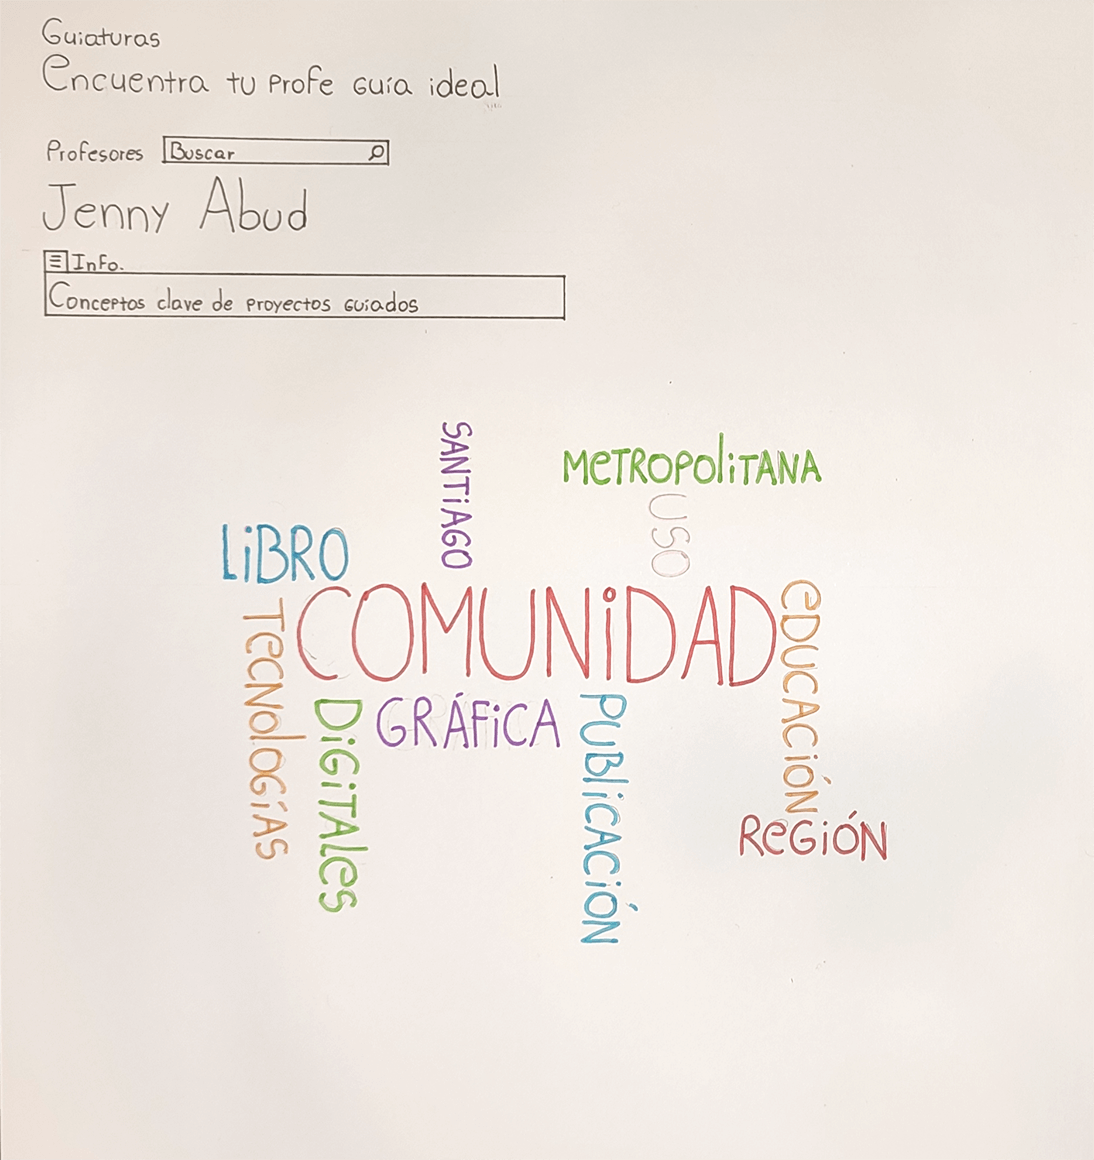 Guiaturas
Encuentra tu profe guía ideal
Profesores Buscar
Jenny Abud
Info.
Conceptos clave de proyectos guiados
SANTIAGO
METROPOLITANA
USO
LIBRO
COMUNIDAD
EDUCACIÓN
TECNOLOGÍAS
DIGITALES
GRÁFICA
PUBLICACIÓN
REGIÓN